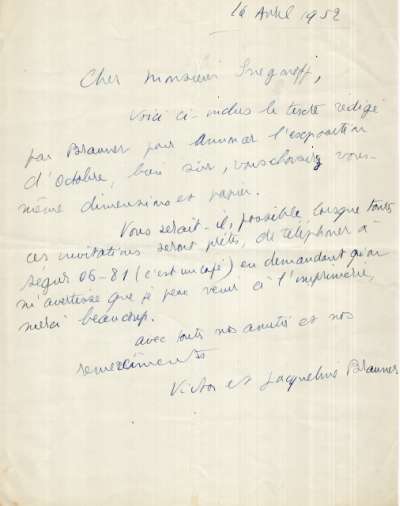 16 Avril 1952
Cher Monsieur Snegaroff,
Voici ci-inclus le texte rédigé
par Brauner pour annoncer l'exposition
d'Octobre, bien sûr, vous choisirez vous-
même dimensions et papier.
Vous serait-il, possible lorsque toutes
ces invitations seront prêtes, de téléphoner à
Ségur 06-81 (c'est un café) en demandant qu'on
m'avertisse que je peux venir à l'imprimerie,
merci beaucoup.
avec toutes nos amitiés et nos
remerciements
Victor et Jacqueline Brauner